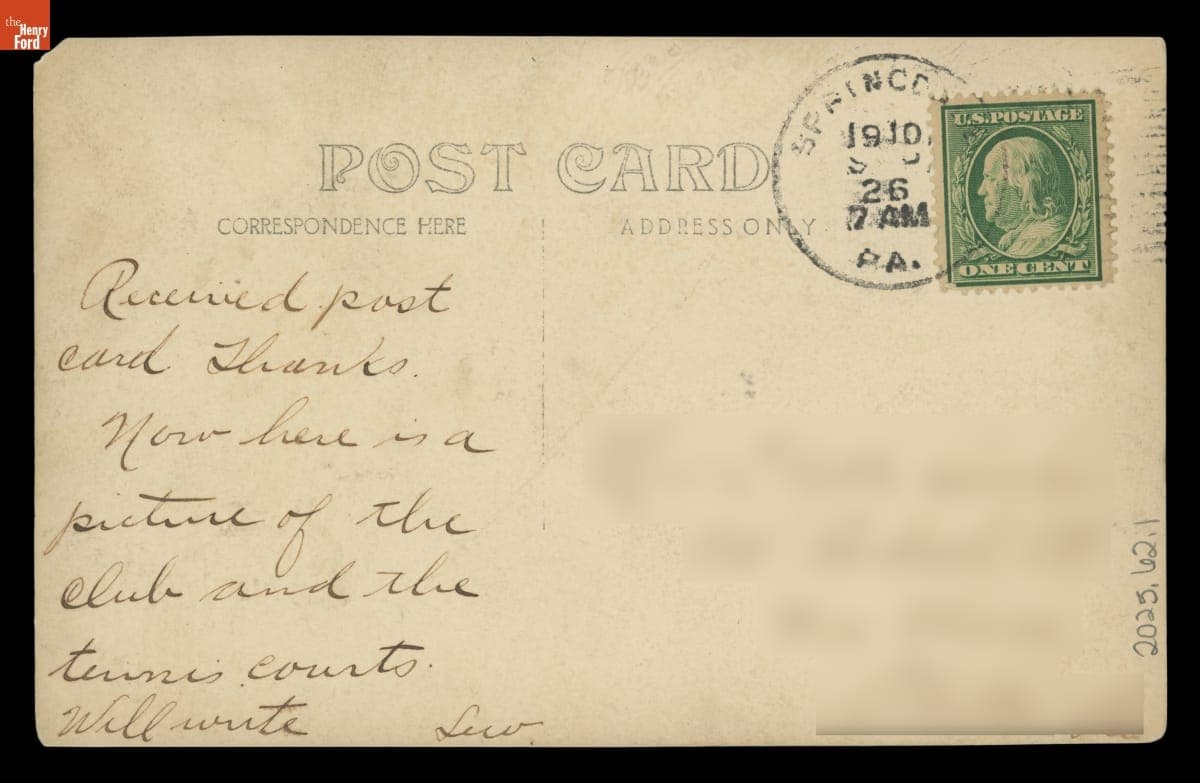 the
Henry
Ford
POST CARD
CORRESPONDENCE HERE
ADDRESS ONLY
1910
26
7 AM
PA.
U.S. POSTAGE
ONE CENT
Received post
card. Thanks.
Now here is a
picture of the
club and the
tennis courts.
Will write
2025.62.1